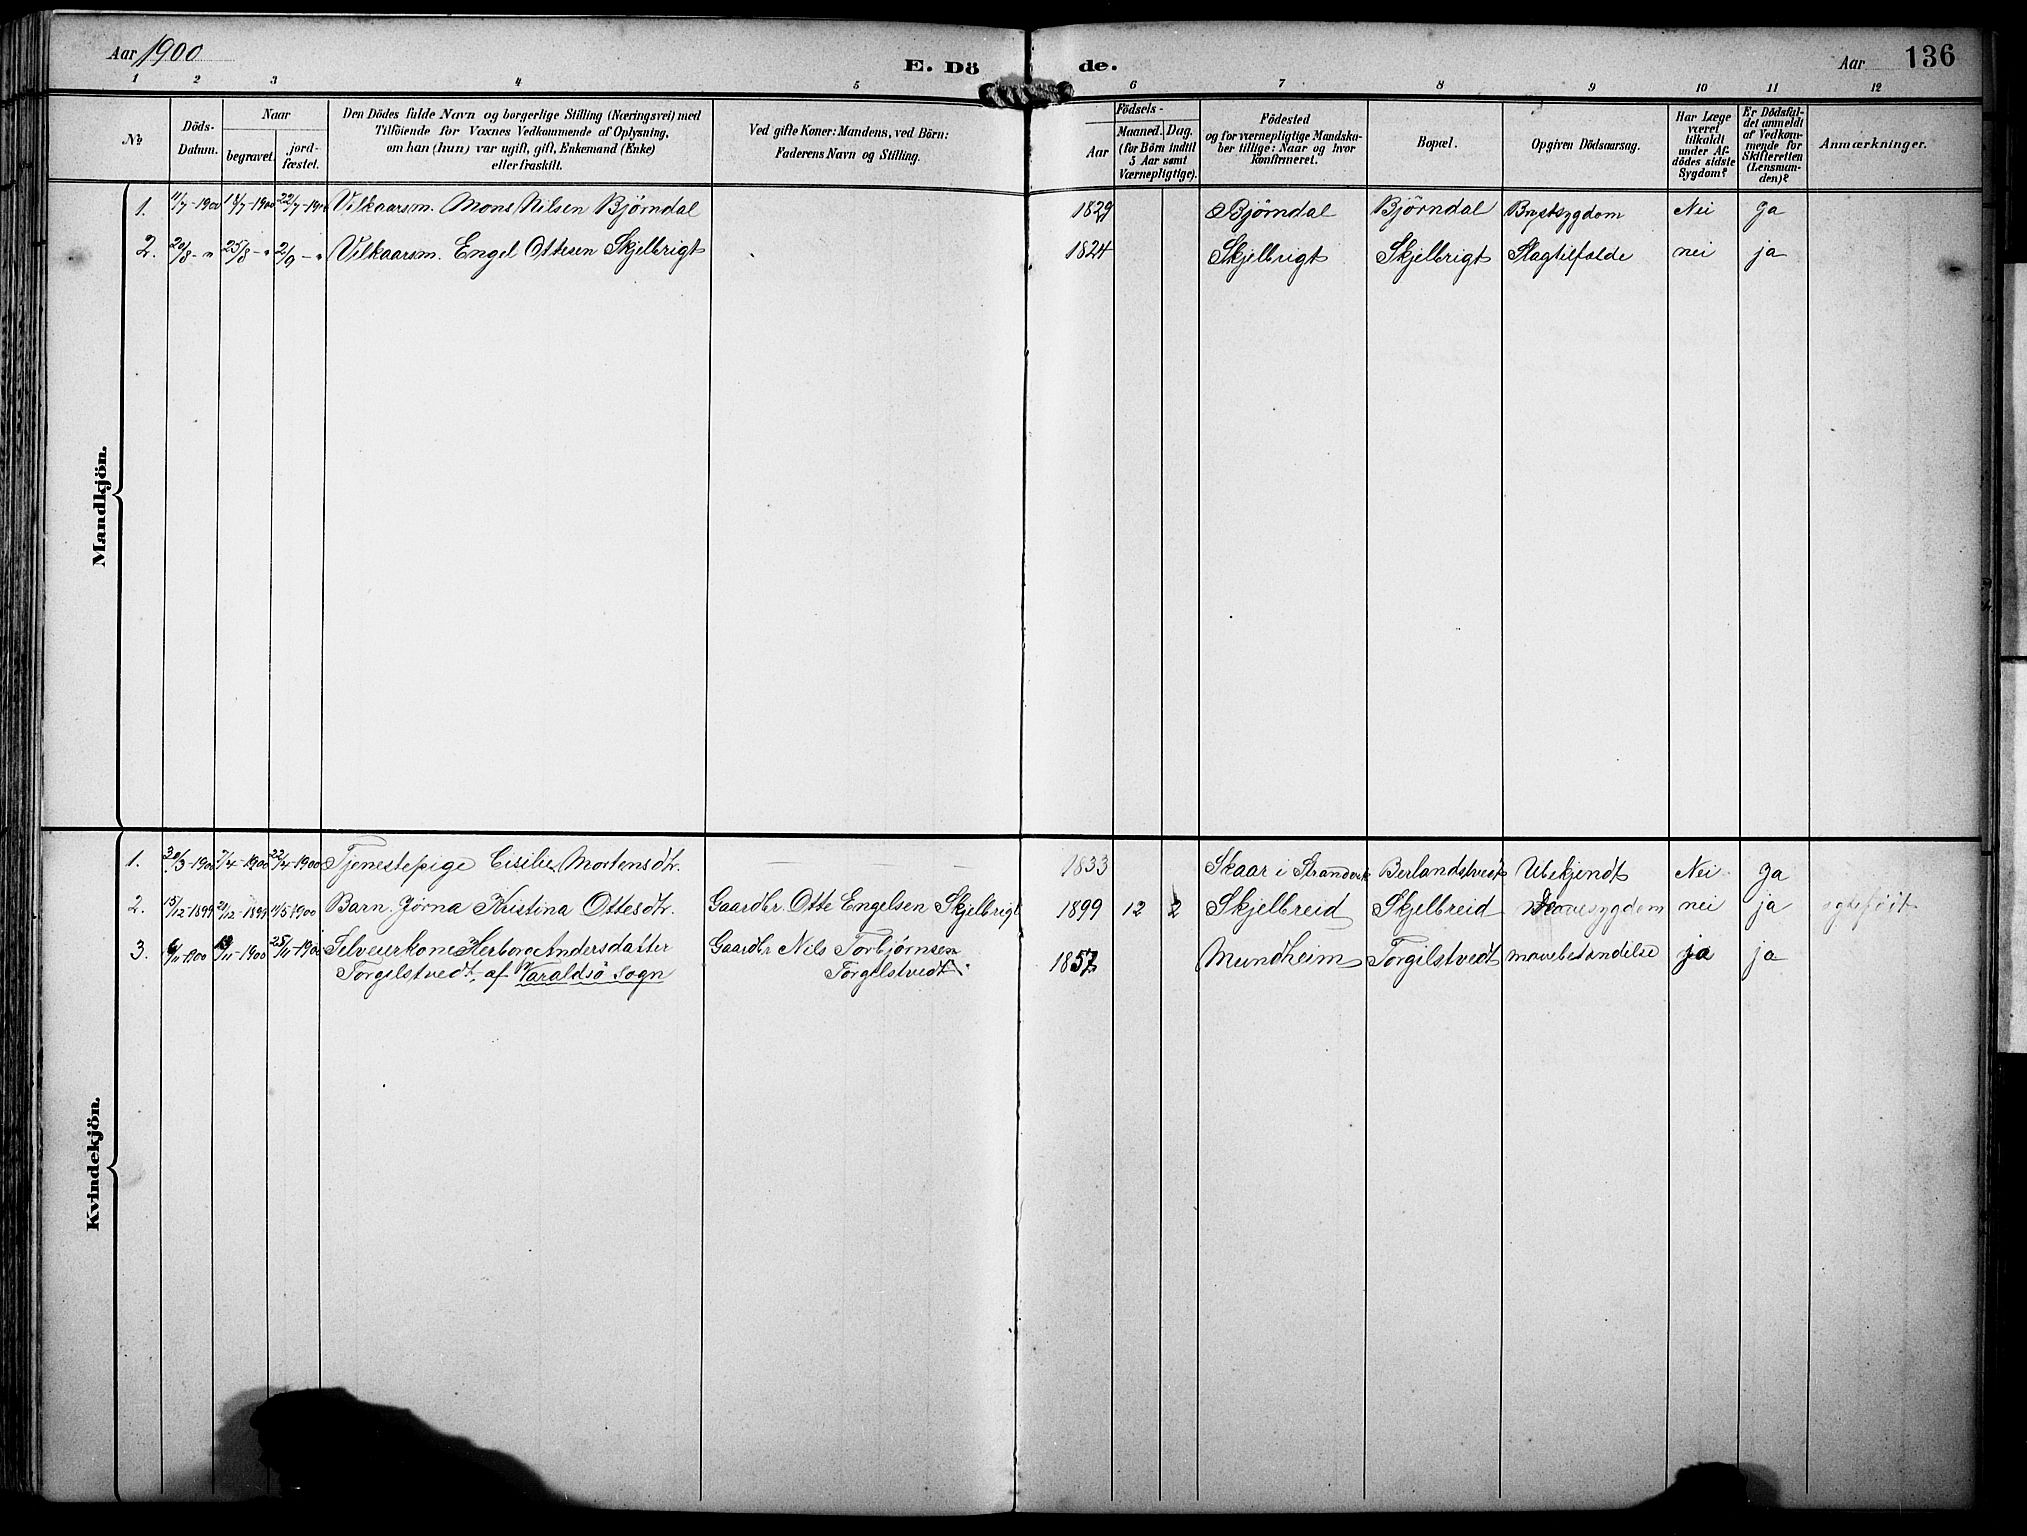 Aar 1900 E. Dö de. Aar 136
1 2 3 4 5 6 7 8 9 10 11 12
No Döds-Datum. Naar begravet. jord-fæstet. Den Dödes fulde Navn og borgerlige Stilling (Næringsvei) med Tilföiende for Voxnes Vedkommende af Oplysning, om han (hun) var ugift, gift, Enkemand (Enke) eller fraskilt. Ved gifte Koner: Mandens, ved Börn: Faderens Navn og Stilling. Födsels- Aar Maaned. Dag. (for Börn indtil 5 Aar samt Værnepligtige). Födested og for værnepligtige Mandskaber tillige: Naar og hvor Konfirmeret. Bopæl. Opgiven Dödsaarsag. Har Læge været tilkaldt under Afdödes sidste Sygdom? Er Dödsfaldet anmeldt af Vedkommende for Skifteretten (Lensmanden)? Anmærkninger.
Mandkjön.
1. 11/7-1900 18/7-1900 22/7-1900 Vilkaarsm. Mons Nilsen Björndal 1829 Björndal Björndal Brystsygdom Nei Ja
2. 20/8-" 25/8-" 2/9-" Vilkaarsm. Engel Ottesen Skjelbrigt 1824 Skjelbrigt Skjelbrigt Slagtilfælde nei ja
Kvindekjön.
1. 30/3-1900 7/4-1900 22/4-1900 Tjenestepige Cisilie Mortensdtr. — — 1833 Skaar i Strandvik Berlandstvedt Ubekjendt Nei Ja
2. 15/12-1899 21/12-1899 1900 Barn. Jörna Kristina Ottesdtr. Gaardbr. Otte Engelsen Skjelbrigt 1899 12 2 Skjelbreid Skjelbreid nei ja
3. 6/11-1900 13/11-1900 25/11-1900 Selveierkone Herborg Andersdatter Gaardbr Nils Torbjørnsen 1857 Mundheim Torgilstvedt mavebetændelse ja ja
Torgilstvedt, af Varaldsö Sogn Torgilstvedt